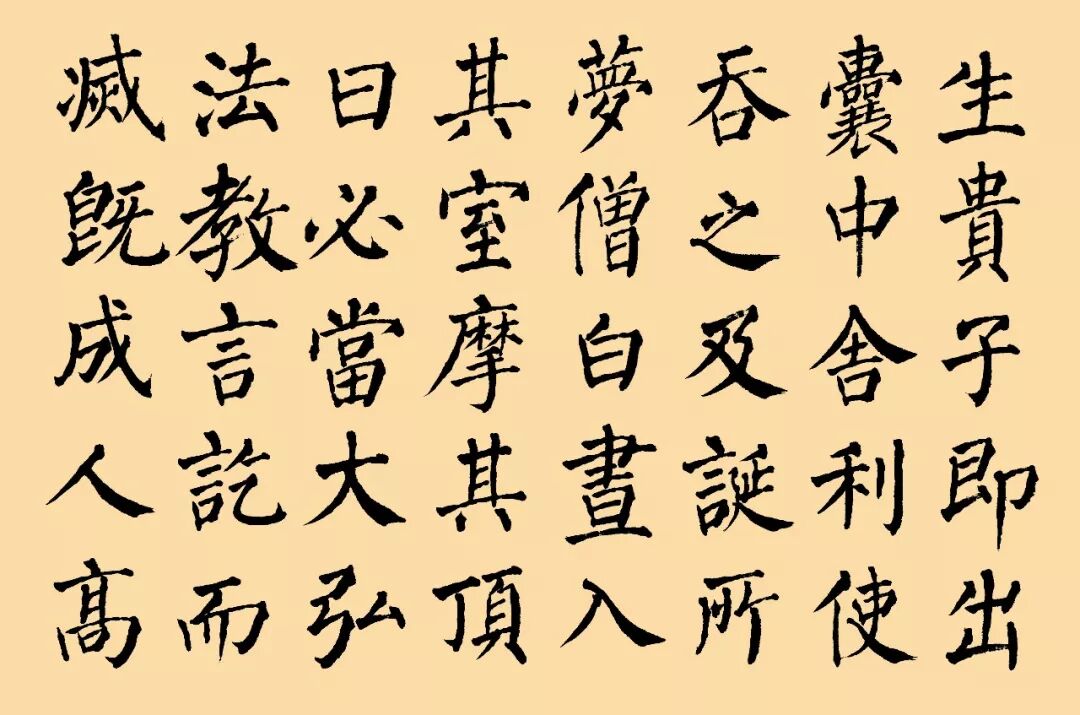 生貴子即出
囊中舍利使
吞之及誕所
夢僧白晝入
其室摩其頂
曰必當大弘
法教言訖而
滅既成人高